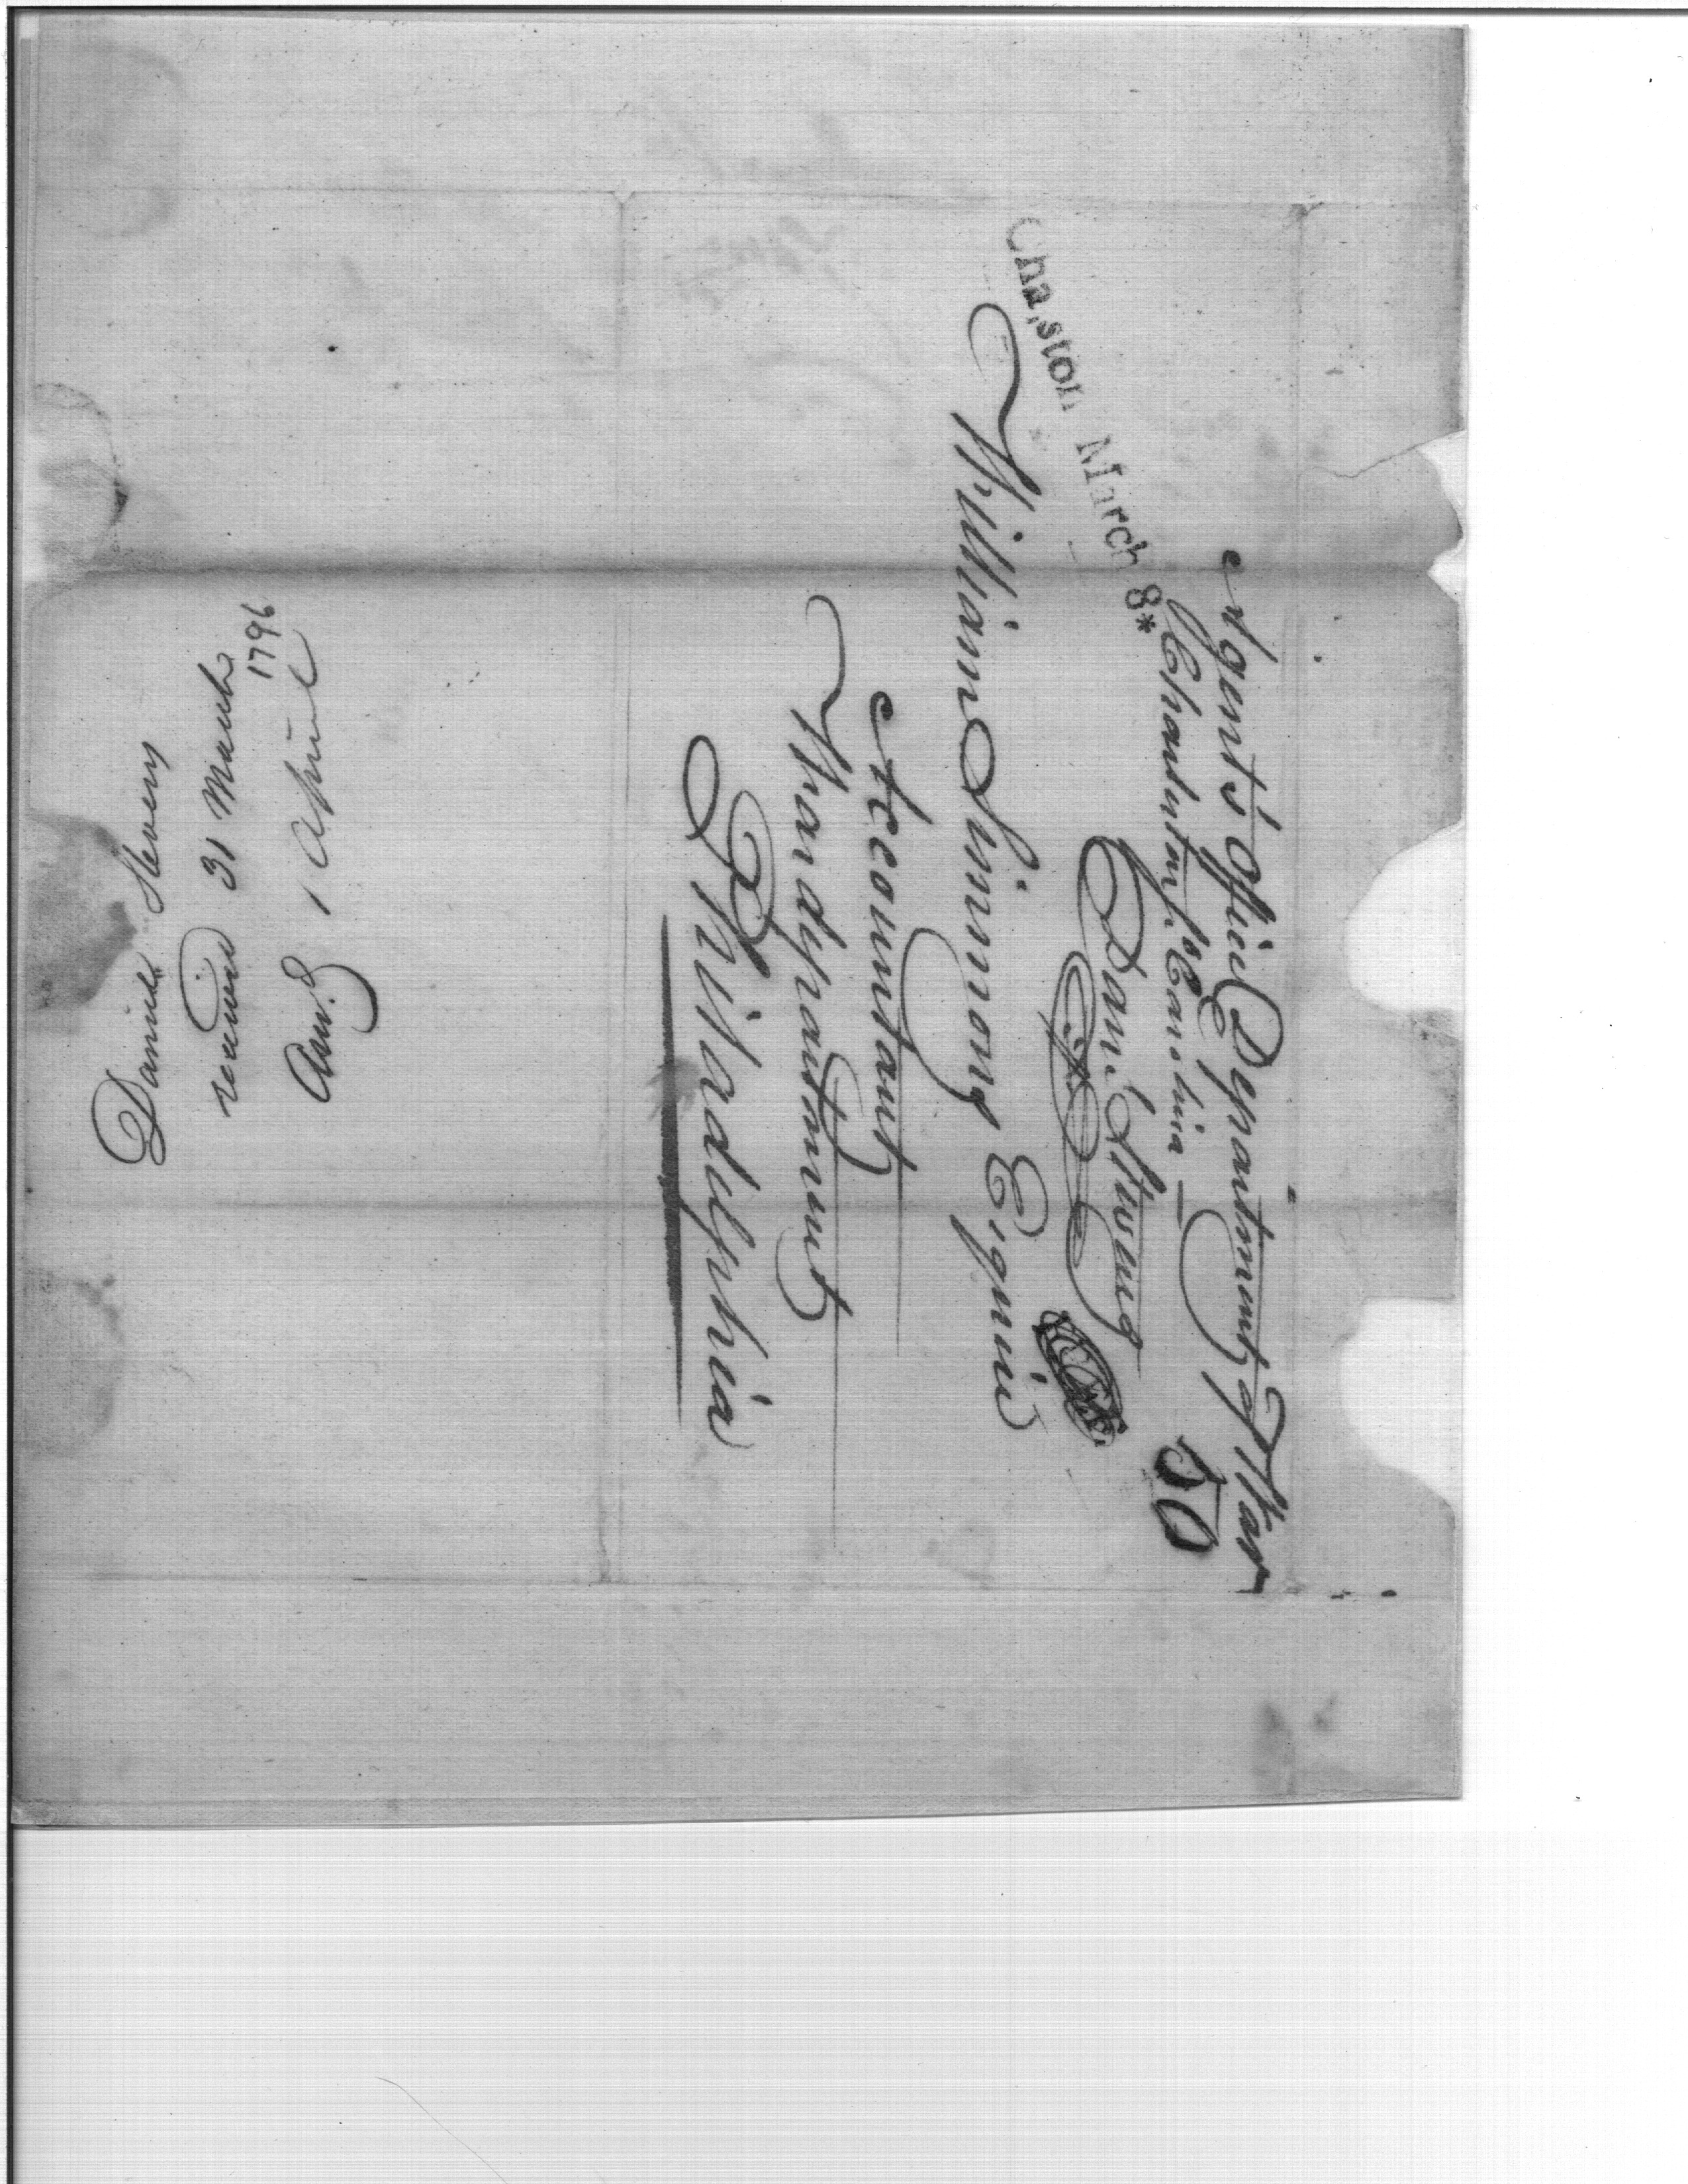 Agents Office Department of War
Charleston So. Carolina
Dan. Stevens
50
Cha,ston March 8*
William Simmons Esquire
Accountant
War department
Philadelphia
Daniel Stevens
received 31 March
1796
Answ.d 1 April